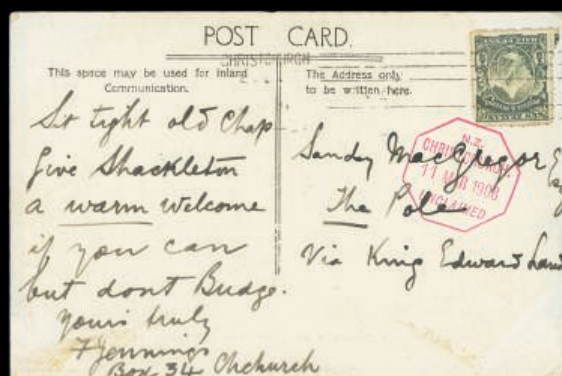 POST CARD.
CHRISTCHURCH
This space may be used for Inland
Communication.
The Address only
to be written here.
Sit tight old Chap
Give Shackleton
a warm welcome
if you can
but dont Budge.
Yours truly
F Jennings
Box 34 Chchurch
Sandy MacGregor Esq
The Pole
Via King Edward Land
N.Z.
CHRISTCHURCH
11 MAR 1908
UNCLAIMED